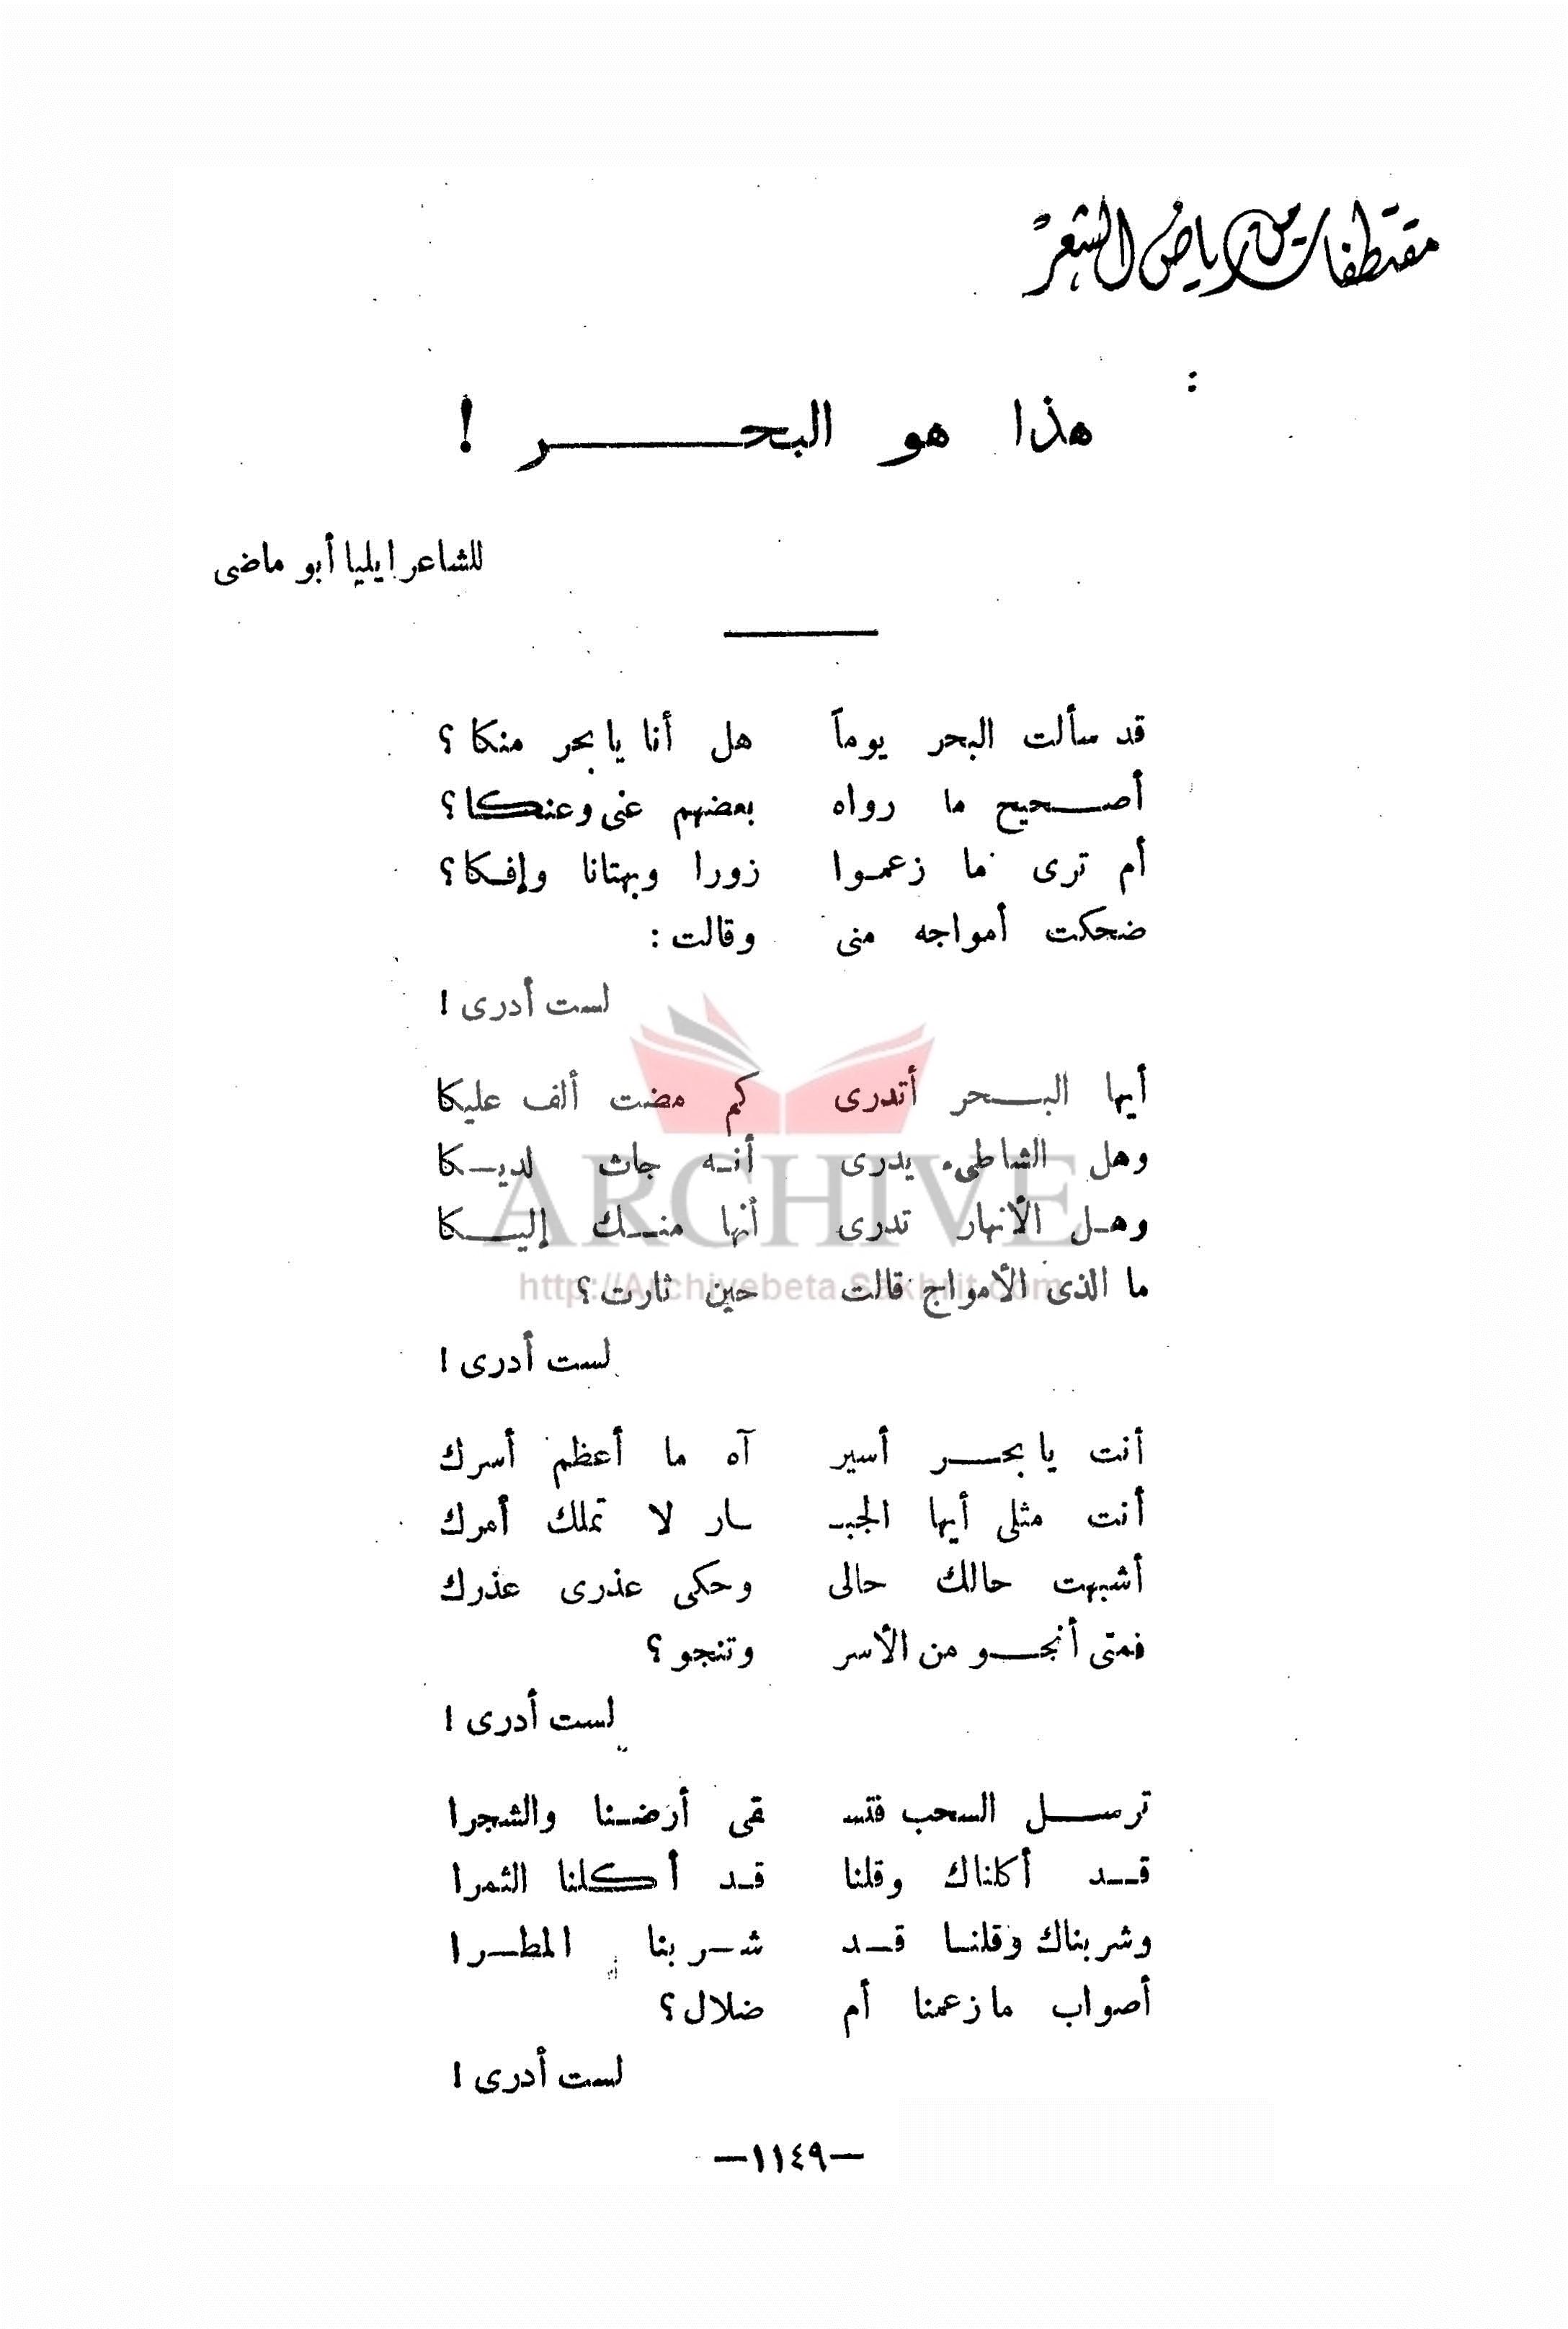 مقتطفات من رياض الشعر
هذا هو البحر !
للشاعر ايليا أبو ماضى
قد سألت البحر يوماً هل أنا يا بحر منكا ؟
أصحيح ما رواه بعضهم عنى وعنكا ؟
أم ترى ما زعموا زورا وبهتانا وإفكا ؟
ضحكت أمواجه منى وقالت :
لست أدرى !
أيها البحر أتدرى كم مضت ألف عليكا
وهل الشاطىء يدرى أنه جاث لديكا
وهل الأنهار تدرى أنها منك إليكا
ما الذى الأمواج قالت حين ثارت ؟
لست أدرى !
أنت يا بحر أسير آه ما أعظم أسرك
أنت مثلى أيها الجبـ ـار لا تملك أمرك
أشبهت حالك حالى وحكى عذرى عذرك
فمتى أنجو من الأسر وتنجو ؟
لست أدرى !
ترسل السحب فتسـ ـقى أرضنا والشجرا
قد أكلناك وقلنا قد أكلنا الثمرا
وشربناك وقلنا قد شربنا المطرا
أصواب ما زعمنا أم ضلال ؟
لست أدرى !
—١١٤٩—
ARCHIVE
http://Archivebeta.Sakhrit.com